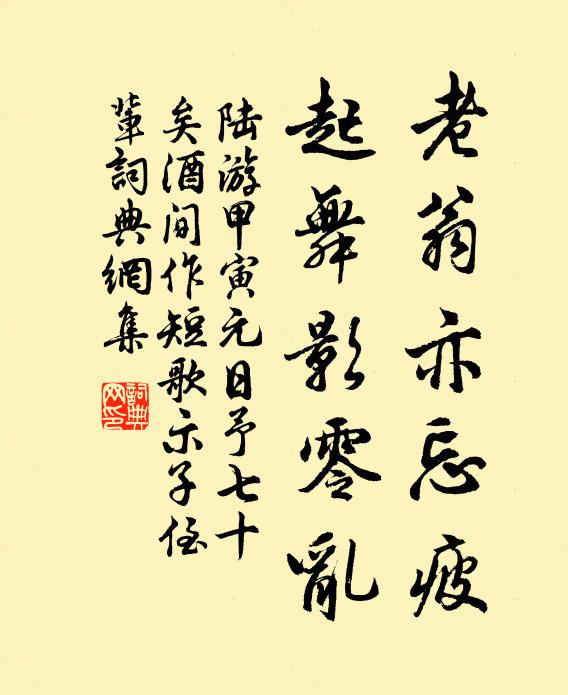 老翁亦忘疲
起舞影零亂
陆游甲寅元日予七十
矣酒间作短歌示子侄
輩詞典網集
詞典
网印